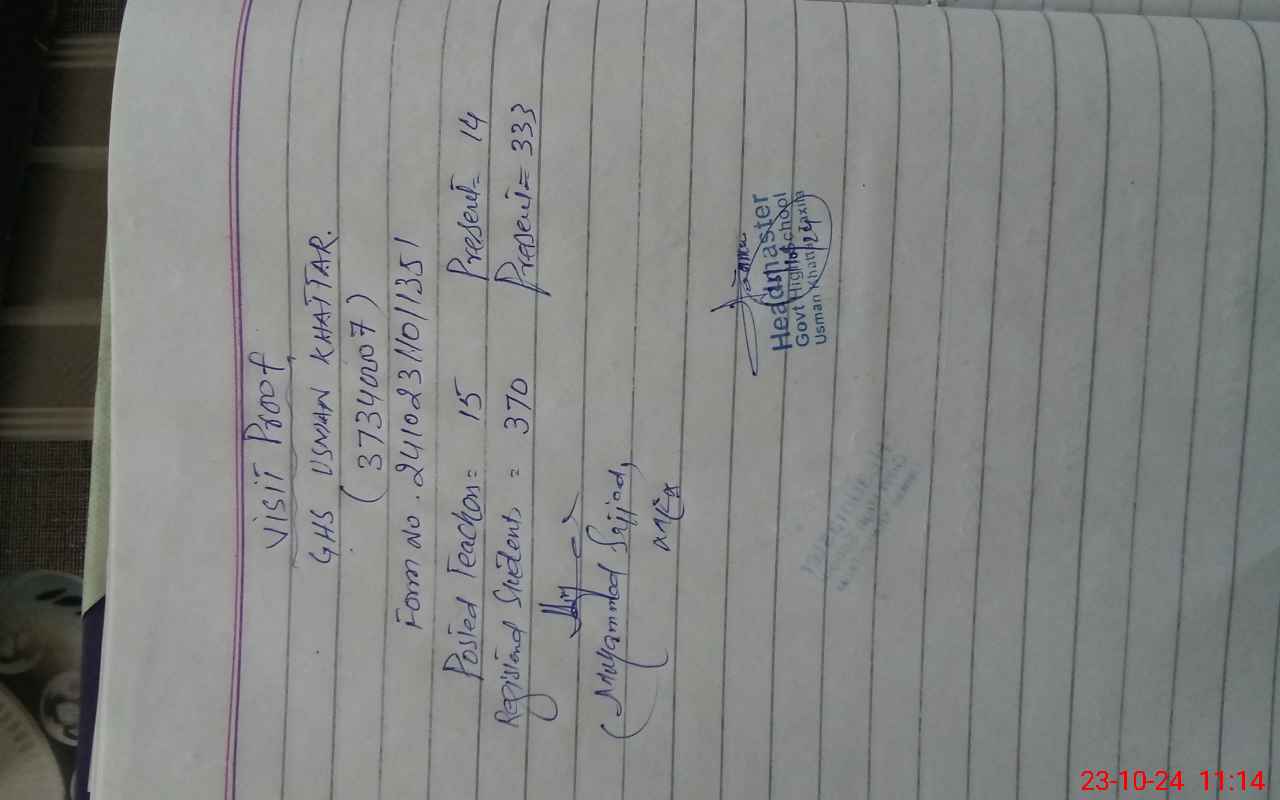 VISIT Proof
GHS USMAN KHATTAR.
(37340007)
Form No. 24102311011351
Posted Teachers = 15 Present = 14
Registered Students = 370 Present = 333
(Muhammad Sajjad)
Headmaster
Govt High School
Usman Khattar Taxila
23-10-24 11:14